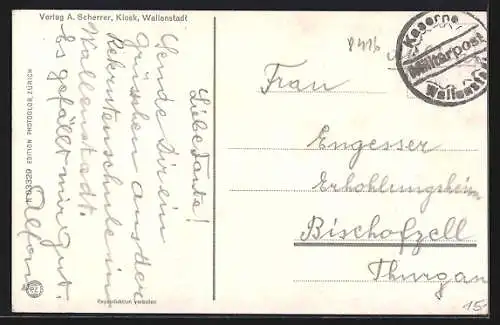 Verlag A. Scherrer, Kiosk, Wallenstadt
Liebe Tante!
Sende Dir ein
Grüsschen aus der
Rekrutenschule in
Wallenstadt.
Es gefällt mir gut.
Alfons
EDITION PHOTOGLOB, ZÜRICH
Reproduktion verboten
Kaserne
Militärpost
Wallenstadt
Frau
Engesser
Erhohlungsheim
Bischofzell
Thurgau
15.-